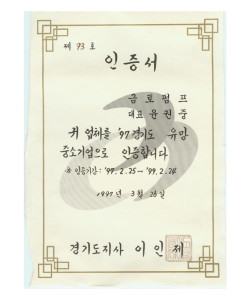 제 93 호
인증서
대표 윤권중
귀 업체를 '97 경기도 유망
중소기업으로 인증합니다
※ 인증기간 : '97. 2. 25 → '99. 2. 24.
1997년 3월 26일
경기도지사 이인제